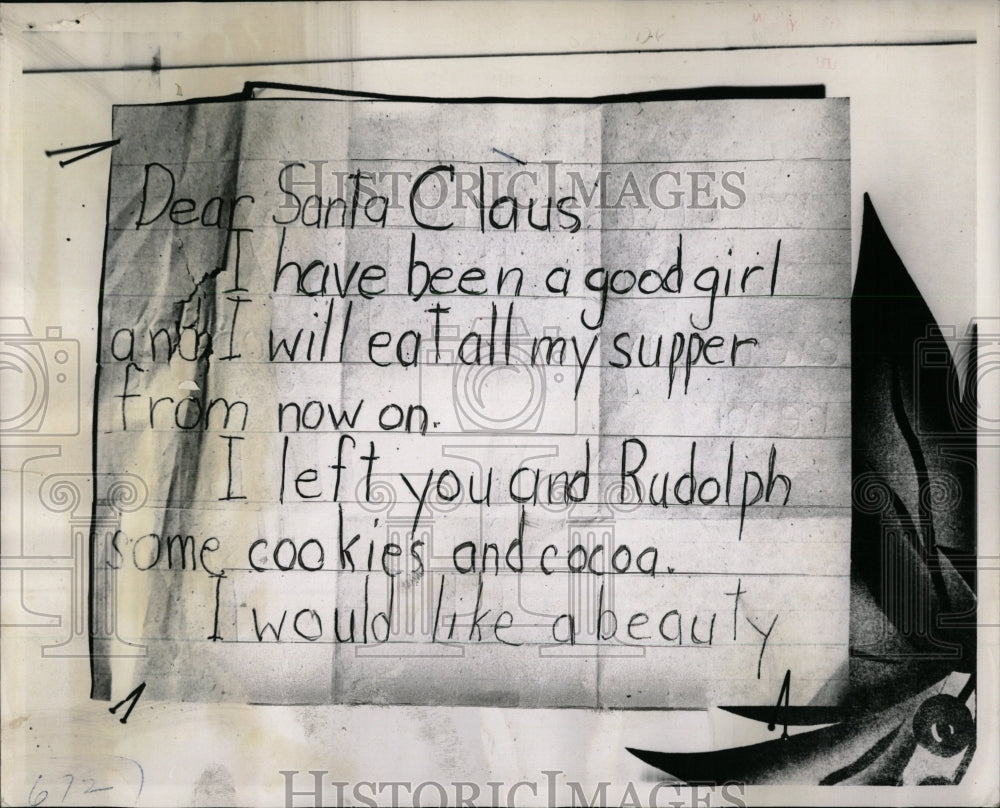 Dear Santa Claus
I have been a good girl
and I will eat all my supper
from now on.
I left you and Rudolph
some cookies and cocoa.
I would like a beauty
672
HISTORICIMAGES
HISTORICIMAGES